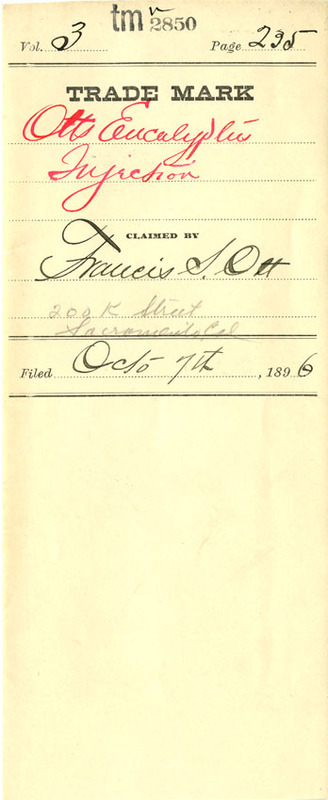 tm 2850
Vol. 3 Page 235
TRADE MARK
Otts Eucalyptus
Injection
CLAIMED BY
Francis S. Ott
200 K Street
Sacramento Cal
Filed Oct 7th, 1896